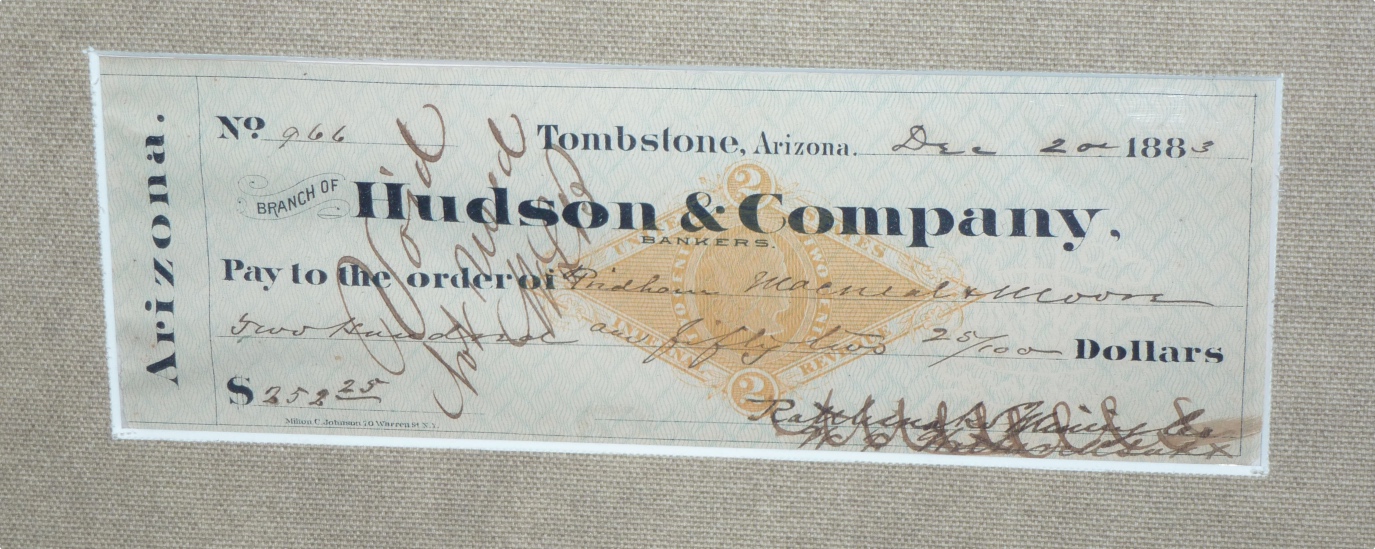 Arizona.
No 966 Tombstone, Arizona. Dec 20 1883
BRANCH OF Hudson & Company,
BANKERS.
Pay to the order of Pridham Macneal & Moore
Two Hundred and fifty two 25/100 Dollars
$ 252 25
Milton C. Johnson 70 Warren St N.Y.
Void
Not used
2 UNITED STATES
TWO
INTERNAL REVENUE
2
Mining Co